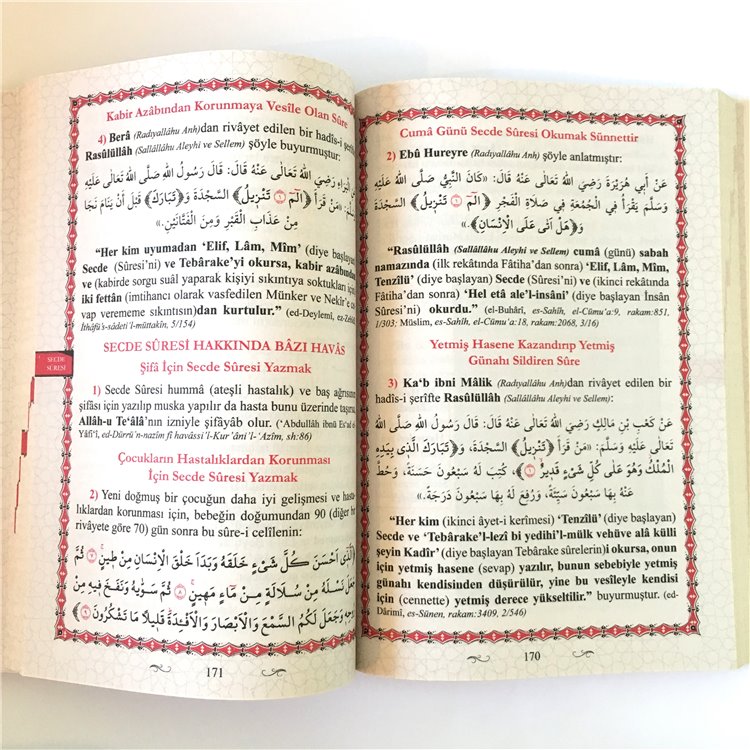 Cumâ Günü Secde Sûresi Okumak Sünnettir
2) Ebû Hureyre (Radıyallâhu Anh) şöyle anlatmıştır:
عَنْ أَبِي هُرَيْرَةَ رَضِيَ اللهُ تَعَالَى عَنْهُ قَالَ: كَانَ النَّبِيُّ صَلَّى اللهُ تَعَالَى عَلَيْهِ
وَسَلَّمَ يَقْرَأُ فِي الْجُمُعَةِ فِي صَلَاةِ الْفَجْرِ ﴿الٓمٓ ﴿١﴾ تَنْزٖيلُ﴾ السَّجْدَةَ
وَ﴿هَلْ اَتٰى عَلَى الْاِنْسَانِ﴾.»
“Rasûlüllâh (Sallâllâhu Aleyhi ve Sellem) cumâ (günü) sabah
namazında (ilk rekâtında Fâtiha’dan sonra) ‘Elif, Lâm, Mîm,
Tenzîlü’ (diye başlayan) Secde (Sûresi’ni) ve (ikinci rekâtında
Fâtiha’dan sonra) ‘Hel etâ ale’l-insâni’ (diye başlayan İnsân
Sûresi’ni) okurdu.” (el-Buhârî, es-Sahîh, el-Cümu‘a:9, rakam:851,
1/303; Müslim, es-Sahîh, el-Cümu‘a:18, rakam:2068, 3/16)
Yetmiş Hasene Kazandırıp Yetmiş
Günahı Sildiren Sûre
3) Ka‘b ibni Mâlik (Radıyallâhu Anh)dan rivâyet edilen bir
hadîs-i şerîfte Rasûlüllâh (Sallâllâhu Aleyhi ve Sellem):
عَنْ كَعْبِ بْنِ مَالِكٍ رَضِيَ اللهُ عَنْهُ قَالَ: قَالَ رَسُولُ اللهِ صَلَّى اللهُ
تَعَالَى عَلَيْهِ وَسَلَّمَ: «مَنْ قَرَأَ ﴿تَنْزٖيلُ﴾ السَّجْدَةَ، وَ﴿تَبَارَكَ الَّذٖي بِيَدِهِ
الْمُلْكُ وَهُوَ عَلٰى كُلِّ شَيْءٍ قَدٖيرٌ ﴿١﴾﴾، كُتِبَ لَهُ سَبْعُونَ حَسَنَةً، وَحُطَّ
عَنْهُ بِهَا سَبْعُونَ سَيِّئَةً، وَرُفِعَ لَهُ بِهَا سَبْعُونَ دَرَجَةً.»
“Her kim (ikinci âyet-i kerîmesi) ‘Tenzîlü’ (diye başlayan)
Secde ve ‘Tebârake’l-lezî bi yedihi’l-mülk vehüve alâ külli
şeyin Kadîr’ (diye başlayan Tebârake sûrelerin)i okursa, onun
için yetmiş hasene (sevap) yazılır, bunun sebebiyle yetmiş
günahı kendisinden düşürülür, yine bu vesîleyle kendisi
için (cennette) yetmiş derece yükseltilir.” buyurmuştur. (ed-
Dârimî, es-Sünen, rakam:3409, 2/546)
170
Kabir Azâbından Korunmaya Vesîle Olan Sûre
4) Berâ (Radıyallâhu Anh)dan rivâyet edilen bir hadîs-i şerîfte
Rasûlüllâh (Sallâllâhu Aleyhi ve Sellem) şöyle buyurmuştur:
الْبَرَاءِ رَضِيَ اللهُ تَعَالَى عَنْهُ قَالَ: قَالَ رَسُولُ اللهِ صَلَّى اللهُ تَعَالَى عَلَيْهِ
«مَنْ قَرَأَ ﴿الٓمٓ ﴿١﴾ تَنْزٖيلُ﴾ السَّجْدَةَ وَ﴿تَبَارَكَ﴾ قَبْلَ أَنْ يَنَامَ نَجَا
مِنْ عَذَابِ الْقَبْرِ وَمِنَ الْفَتَّانَيْنِ.»
“Her kim uyumadan ‘Elif, Lâm, Mîm’ (diye başlayan)
Secde (Sûresi’ni) ve Tebârake’yi okursa, kabir azâbından
ve (kabirde sorgu suâl yaparak kişiyi sıkıntıya soktukları için)
iki fettân (imtihancı olarak vasfedilen Münker ve Nekîr’e ce-
vap verememe sıkıntısın)dan kurtulur.” (ed-Deylemî, ez-Zebîdî,
İthâfü’s-sâdeti’l-müttakîn, 5/154)
SECDE SÛRESİ HAKKINDA BÂZI HAVÂS
Şifâ İçin Secde Sûresi Yazmak
1) Secde Sûresi hummâ (ateşli hastalık) ve baş ağrısının
şifâsı için yazılıp muska yapılır da hasta bunu üzerinde taşırsa,
Allâh-u Te‘âlâ’nın izniyle şifâyâb olur. (‘Abdullâh ibnü Es‘ad el-
Yâfi‘î, ed-Dürrü’n-nazîm fî havâssi’l-Kur’âni’l-‘Azîm, sh:86)
Çocukların Hastalıklardan Korunması
İçin Secde Sûresi Yazmak
2) Yeni doğmuş bir çocuğun daha iyi gelişmesi ve hasta-
lıklardan korunması için, bebeğin doğumundan 90 (diğer bir
rivâyete göre 70) gün sonra bu sûre-i celîlenin:
الَّذٖٓي اَحْسَنَ كُلَّ شَيْءٍ خَلَقَهُ وَبَدَاَ خَلْقَ الْاِنْسَانِ مِنْ طٖينٍۚ ﴿٧﴾ ثُمَّ
جَعَلَ نَسْلَهُ مِنْ سُلَالَةٍ مِنْ مَٓاءٍ مَهٖينٍۚ ﴿٨﴾ ثُمَّ سَوّٰيهُ وَنَفَخَ فٖيهِ مِنْ
رُوحِهٖ وَجَعَلَ لَكُمُ السَّمْعَ وَالْاَبْصَارَ وَالْاَفْـِٔدَةَؕ قَلٖيلًا مَا تَشْكُرُونَ ﴿٩﴾
171
SECDE
SÛRESİ